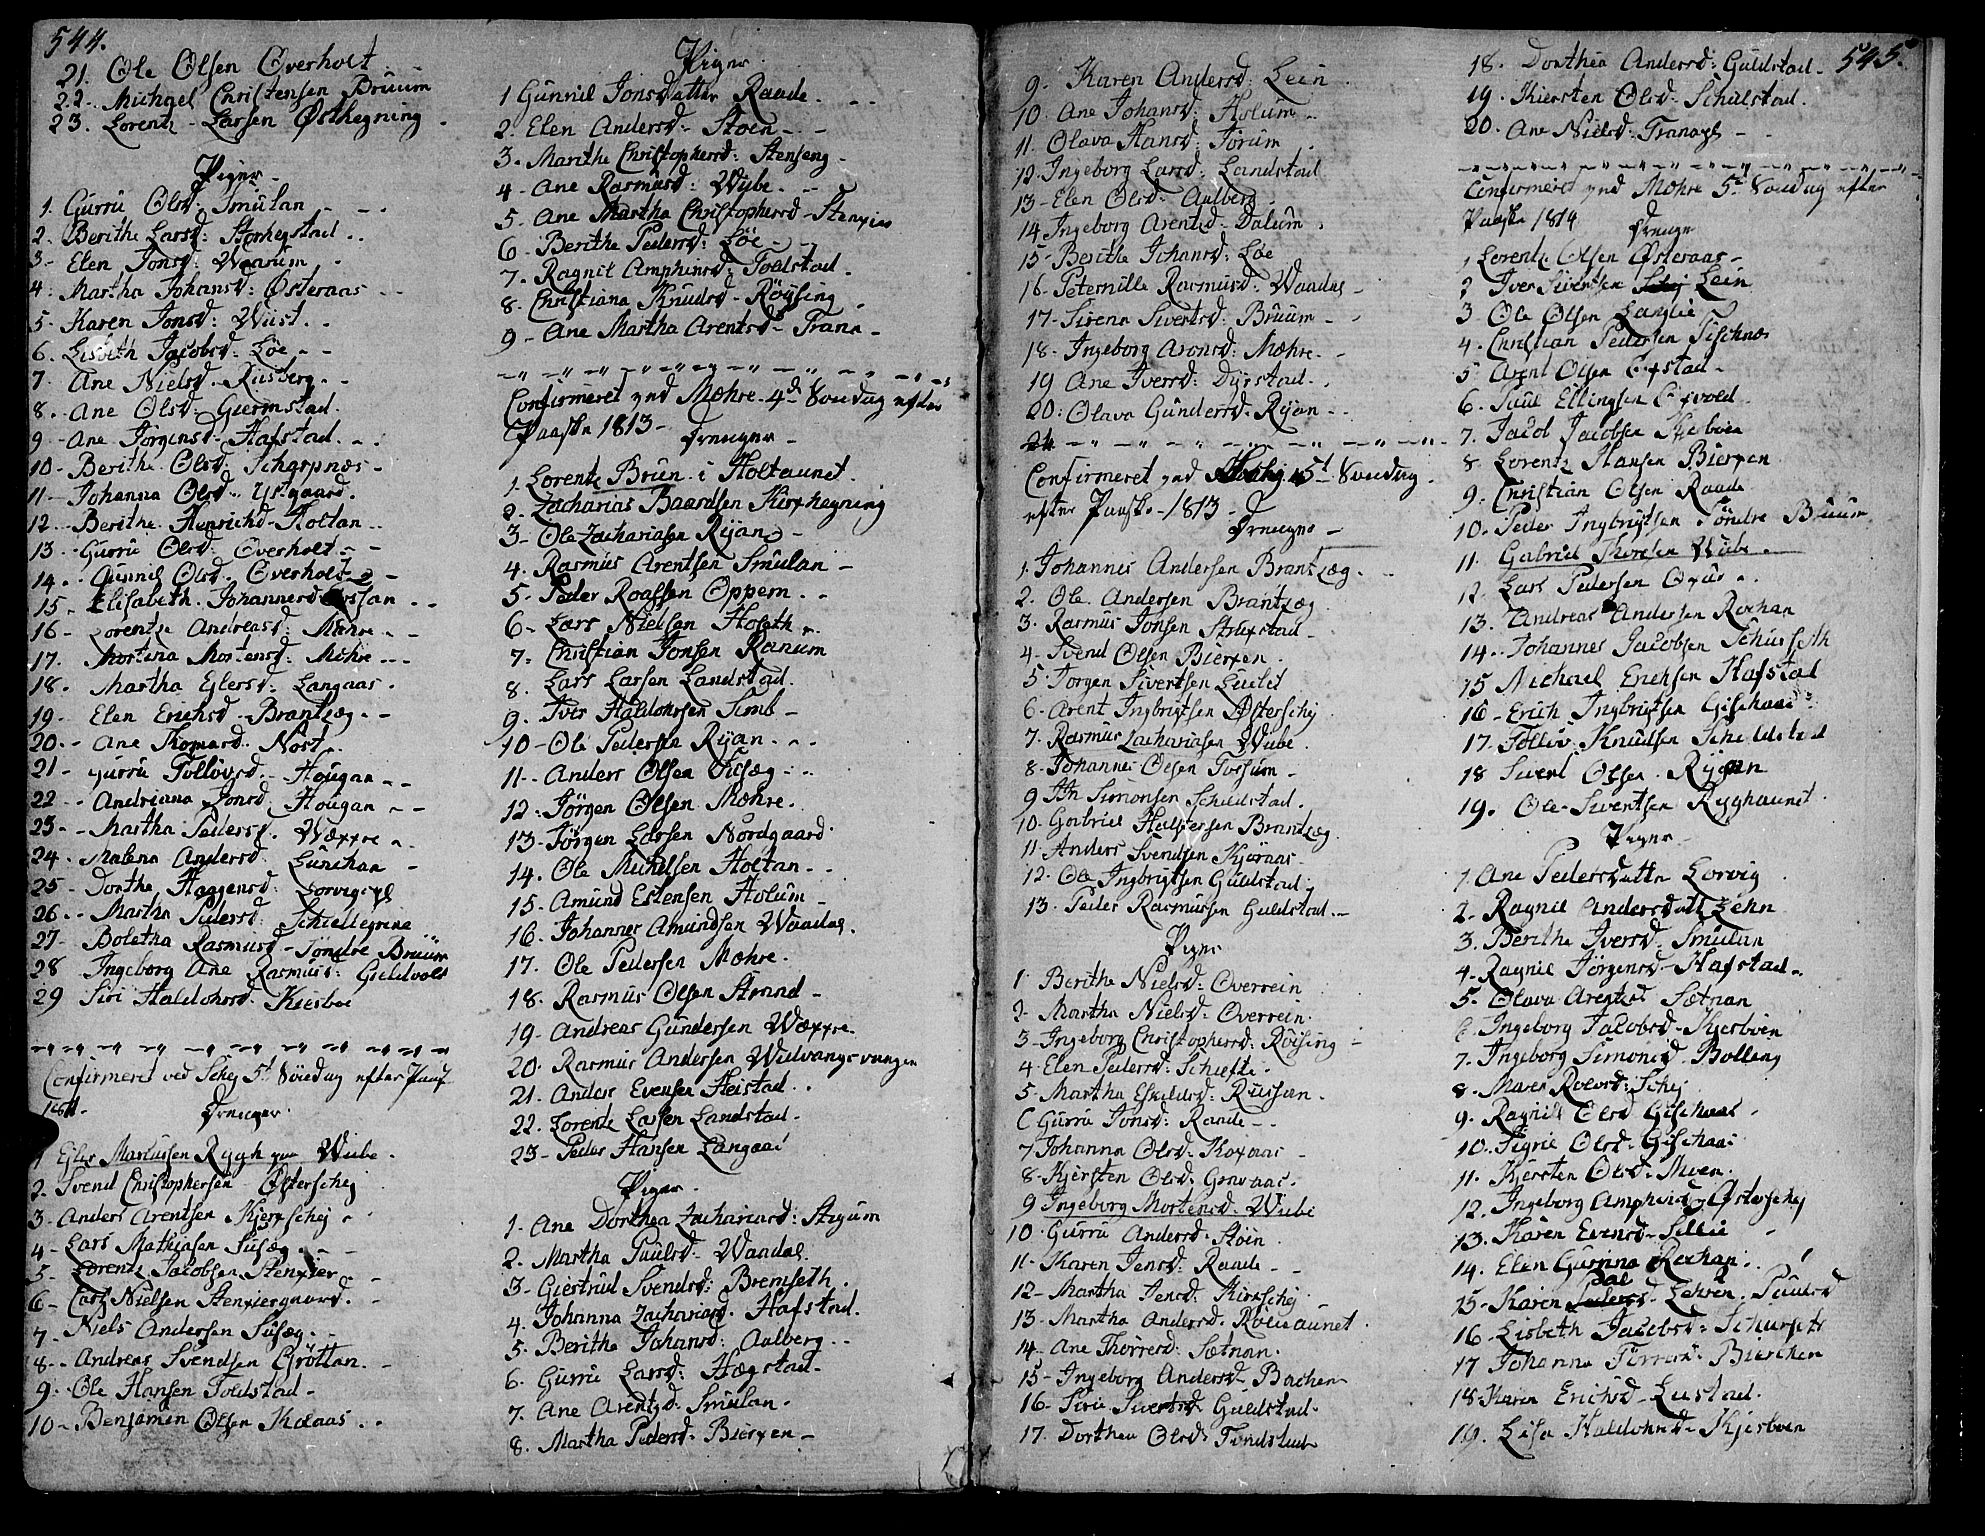 544.
21. Ole Olsen Overholt
22. Michael Christensen Bruum
23. Lorentz Larsen Østhegning
Piger
1. Gurru Olsd: Smulan
2. Berithe Larsd: Storhegstad
3. Elen Jonsd: Waarum
4. Martha Johansd: Østeraas
5. Karen Jonsd: Wiist
6. Lisbeth Jacobsd: Løe
7. Ane Nielsd. Riisberg
8. Ane Olsd: Giermstad
9. Ane Jørgensd. Hafstad
10. Berithe Olsd: Scharpnæs
11. Johanna Olsd. Ystgaard
12. Berithe Henrichd Holtan
13. Gurru Olsd. Overholt
14. Gunnil Olsd. Overholt
15. Elisabeth Johannesd
16. Lorentze Andreasd: Mæhre
17. Mortina Mortensd: Mæhre
18. Martha Eglersd: Langaas
19. Elen Erichsd Brantzæg
20. Ane Thomasd. Nost
21. Gurru Tolløvsd. Hougan
22. Andriana Jonsd. Hougan
23. Martha Pedersd. Wæxre
24. Malena Andersd. Lunehan
25. Dorthe Haggensd: Lorvig
26. Martha Pedersd: Schiellegrina
27. Boletha Rasmusd Søndre Bruum
28 Ingeborg Ane Rasmusd: Guldvold
29 Siri Haldohrsd. Kiesboe
Confirmeret ved Schej 5t Søndag efter Paask
Drenge
1 Egler Marcussen Rygh paa Wiibe
2. Svend Christophersen Østerschej
3. Anders Arentsen Kjerschej
4. Lars Mathiasen Susæg
5. Lorentz Jacobsen Stenxier
6. Carl Nielsen Stenxiergaard
7. Niels Andersen Susæg
8. Andreas Svendsen Grøttan
9. Ole Hansen Toldstad
10. Benjamin Olsen Kolaas
Piger
1 Gunnil Jonsdatter Raade
2. Elen Andersd. Stoen
3. Marithe Christophersd: Stenseng
4. Ane Rasmusd: Wiibe
5. Ane Martha Christophersd Stenxier
6. Berithe Pedersd: Løe
7. Ragnil Amphinsd: Toldstad
8. Christiana Knudsd. Røysing
9. Ane Martha Arentsd. Trana
Confirmeret ved Mæhre 4de Søndag efter
Paaske 1813
Drenge
1. Lorentz Brun i Holtaunet
2. Zacharias Baardsen Kirxhegning
3. Ole Zachariasen Ryan
4. Rasmus Arentsen Smulan
5. Peder Roassen Oppem
6. Lars Nielsen Hoseth
7. Christian Jonsen Ranum
8. Lars Larsen Landstad
9. Iver Haldohrsen Semb
10. Ole Pedersen Ryan
11. Anders Olsen Susæg
12. Jørgen Olsen Mæhre
13. Jørgen Larsen Nordgaard
14. Ole Michelsen Holtan
15. Amund Estensen Holum
16. Johannes Amundsen Waadal
17. Ole Pedersen Mæhre
18. Rasmus Olsen Strand
19. Andreas Gundersen Wæxre
20. Rasmus Andersen Wulvangsvangen
21. Anders Evensen Heistad
22. Lorentz Larsen Landstad
23. Peder Hansen Langaas
Piger
1. Ane Dorthea Zachariasd: Stigum
2. Martha Paulsd. Waadal
3. Giertrud Svendsd: Bremseth
4. Johanna Zachariasd. Hafstad
5. Berithe Johansd: Aalberg
6. Gurru Larsd: Hægstad
7. Ane Arentsd. Smulan
8. Martha Pedersd. Bierxen
9. Karen Andersd. Lein
10. Ane Johansd: Holum
11. Olava Hansd: Forum
12. Ingeborg Larsd: Landstad
13. Elen Olsd: Aalberg
14. Ingeborg Arentsd: Dalum
15. Berithe Johansd: Løe
16. Peternille Rasmusd: Waadal
17. Sirena Sivertsd: Bruum
18. Ingeborg Aronsd: Mæhre
19 Ane Iversd: Dyrstad
20: Olava Gundersd. Ryan
Confirmeret ved 5t Søndag
efter Paaske 1813
Drenge
1. Johannes Andersen Brantzæg
2. Ole Andersen Brantzæg
3. Rasmus Jonsen Struxstad
4. Svend Olsen Bierxen
5. Jørgen Sivertsen
6. Arent Ingbrigtsen Østerschej
7. Rasmus Zachariasen Wiibe
8. Johannes Olsen Fossum
9 Simonsen Schidstad
10. Gabriel Halstersen Brantzæg
11. Anders Svendsen Kjøraas
12. Ole Ingbrigtsen Guldstad
13. Peder Rasmussen Guldstad
Piger
1 Berithe Nielsd: Overrein
2. Martha Nielsd. Overrein
3. Ingeborg Christophersd: Røising
4. Elen Pedersd: Schiefte
5. Martha Eskildsd: Russan
6 Gurru Jonsd: Raade
7 Johanna Olsd. Koxaas
8. Kjersten Olsd. Gravaas
9 Ingeborg Mortensd: Wiibe
10 Gurru Andersd. Støin
11. Karen Jensd: Raade
12. Martha Jensd: Kirxschej
13. Martha Andersd. Rolieaunet
14. Ane Thorresd. Sætnan
15. Ingeborg Andersd. Bachen
16. Siri Sivertsd. Guldstad
17. Dorthea Olsd. Tondstad
18. Dorthea Andersd: Guldstad
545.
19. Kiersten Olsd. Schidstad
20. Ane Nielsd: Tranagl
Confirmeret ved Mæhre 5t Søndag efter
Paaske 1814
Drenge
1 Lorentz Olsen Østeraas
2 Iver Sivertsen Lein
3. Ole Olsen Langlie
4. Christian Pedersen Fischnæs
5 Arent Olsen Egstad
6. Paul Ellingsen Eqvold
7. Jacob Jacobsen Kjesboen
8. Lorentz Hansen Bierxen
9. Christian Olsen Raade
10. Peder Ingbrigtsen Søndre Bruum
11. Gabriel Thoresen Wiibe
12. Lars Pedersen
13. Andreas Andersen Roxhan
14. Johannes Jacobsen Schierseth
15 Michael Erichsen Hafstad
16. Erich Ingbrigtsen Gischaas
17. Tolløv Knudsen Schidstad
18 Sivert Olsen Rygan
19. Ole Sivertsen Ryghaunet
Piger
1. Ane Pedersdatter Lorvig
2. Ragnil Andersdatt Lehn
3. Berithe Iversd: Smulan
4. Ragnil Jørgensd. Hafstad
5. Olava Arentsd Sætnan
6 Ingeborg Jacobsd. Kjesboen
7. Ingeborg Simonsd. Bolling
8. Maren Roaldsd: Schej
9. Ragnil Olsd Gischaas
10. Sigril Olsd. Gischaas
11. Kjersten Olsd. Moen
12. Ingeborg Amphinsd Østerschej
13. Karen Evensd. Sellie
14. Elen Gurina Roxhan
15. Karen Lehren. Paulsd
16. Lisbeth Jacobsd: Schierseth
17 Johanna Torresd: Bierchen
18. Karen Erichsd. Lustad
19. Lisa Haldohrsd. Kjesboen